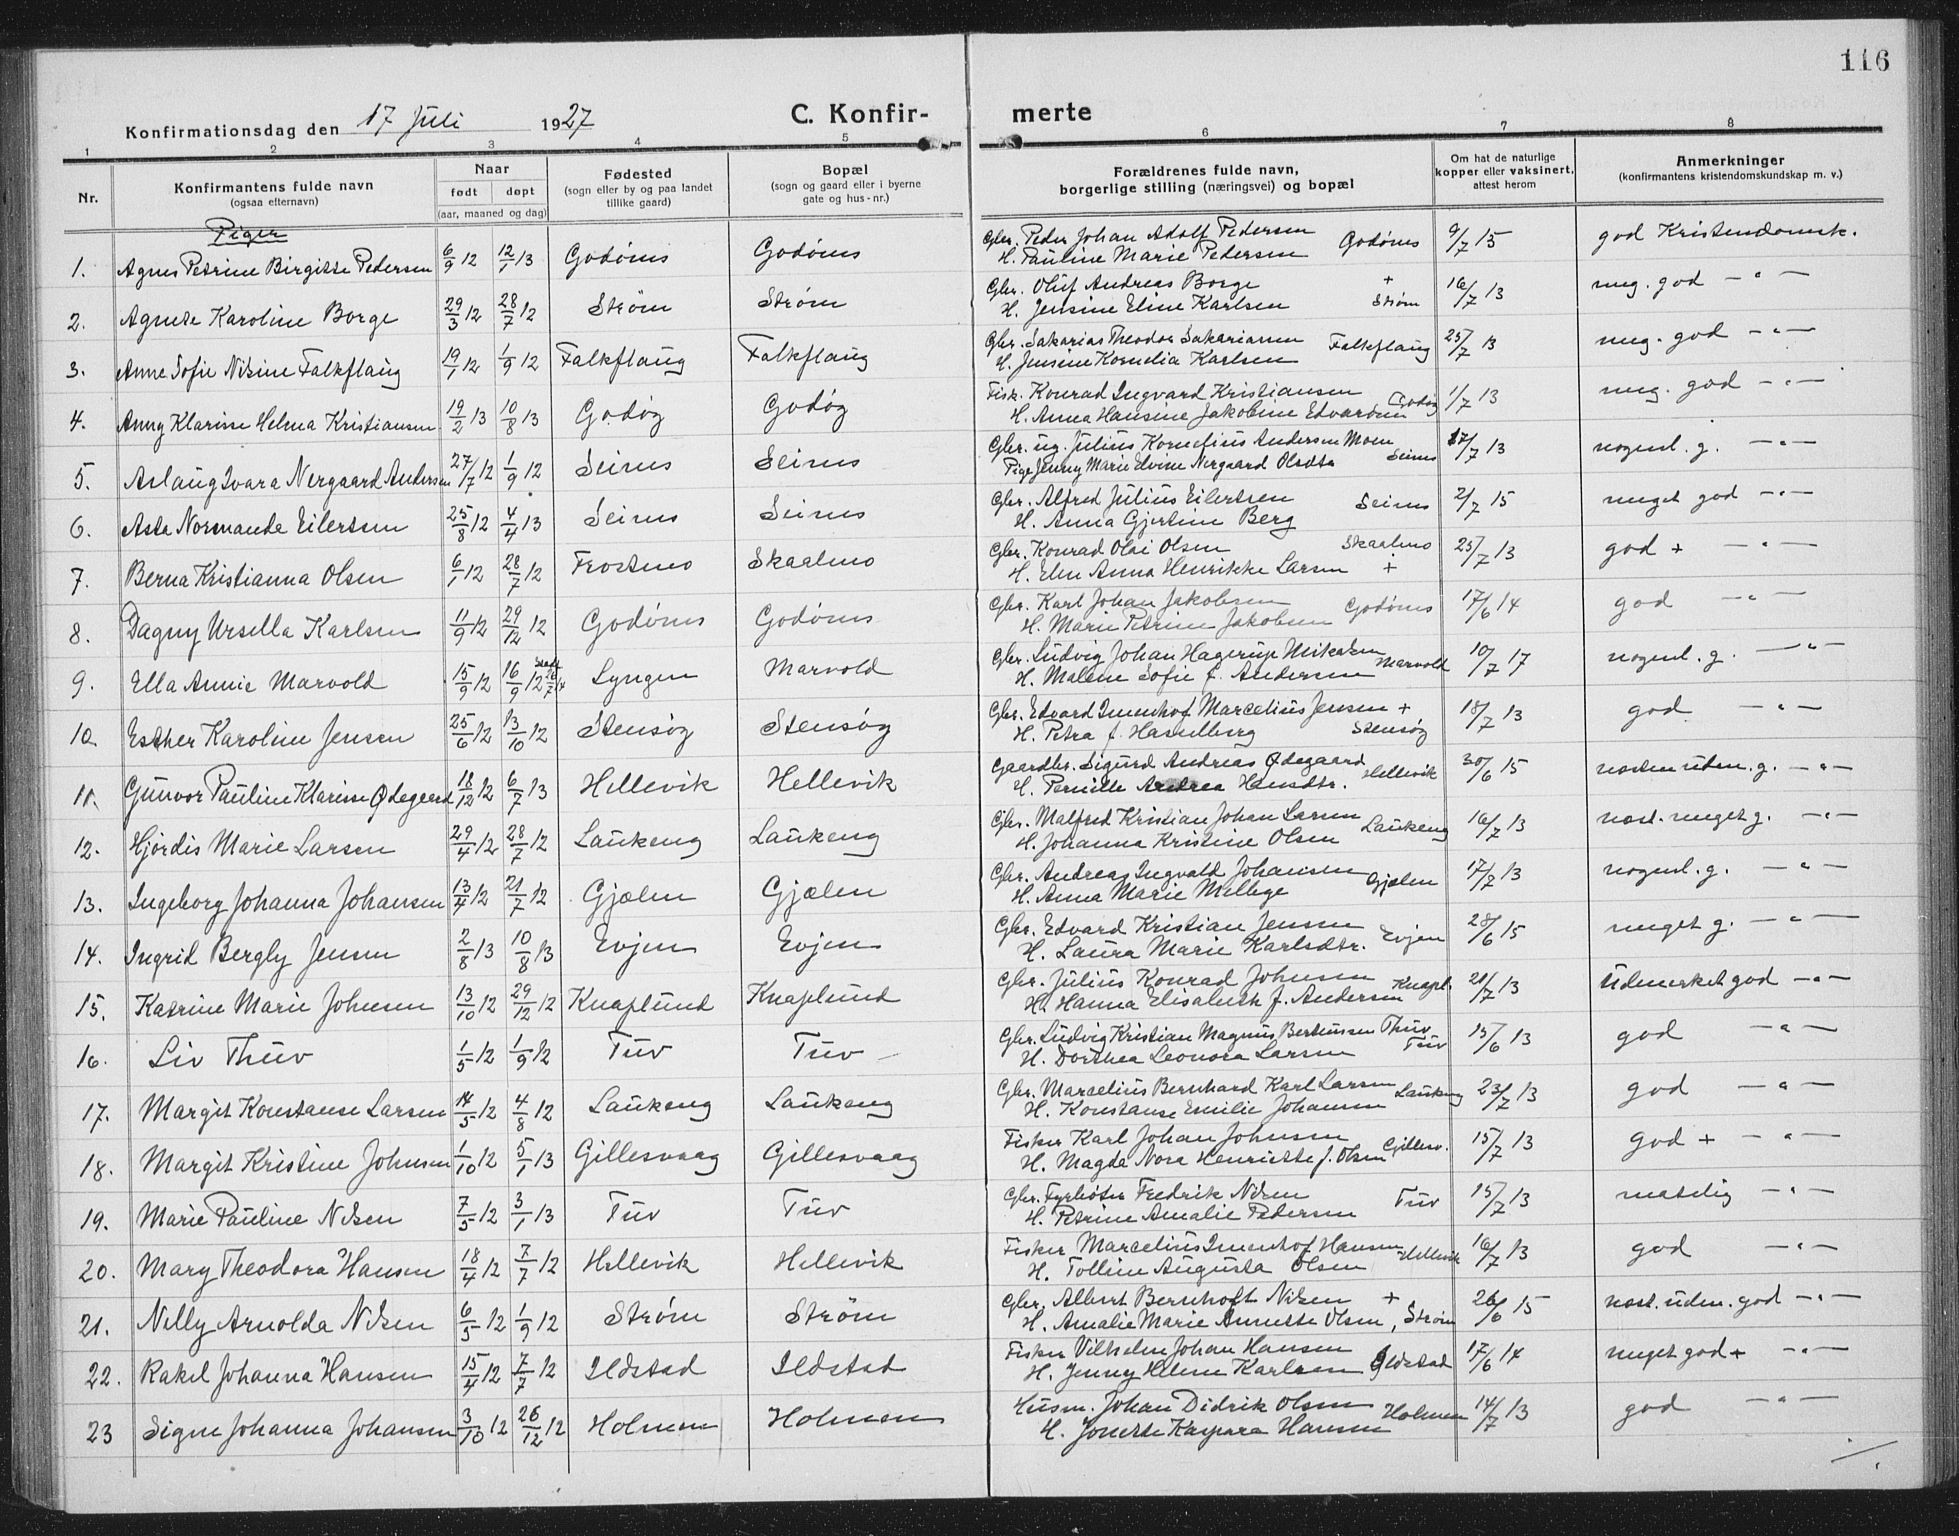 116
Konfirmationsdag den 17 Juli 1927 C. Konfir- merte
1 2 3 4 5 6 7 8
Nr. Konfirmantens fulde navn (ogsaa efternavn) Naar født døpt (aar, maaned og dag) Fødested (sogn eller by og paa landet tillike gaard) Bopæl (sogn og gaard eller i byerne gate og hus-nr.) Forældrenes fulde navn, borgerlige stilling (næringsvei) og bopæl Om hat de naturlige kopper eller vaksinert, attest herom Anmerkninger (konfirmantens kristendomskundskap m. v.)
Piger
1. Agnes Petrine Birgitte Pedersen 6/9 12 12/1 13 Godønes Godønes Gbr. Peder Johan Adolf Pedersen Godønes 9/7 15 god Kristendomsk.
H. Pauline Marie Pedersen
2. Agnete Karoline Borge 29/3 12 28/7 12 Strøm Strøm Gbr. Oluf Andreas Borge + 16/7 13 meg. god - " -
H. Jensine Eline Karlsen Strøm
3. Anne Sofie Nilsine Falkflaug 19/1 12 1/9 12 Falkflaug Falkflaug Gbr. Sakarias Theodor Sakariassen Falkflaug 25/7 13 meg. god - " -
H. Jensine Kornelia Karlsen
4. Anny Klarisse Helena Kristiansen 19/2 13 10/8 13 Godøg Godøg Fisk. Konrad Ingvard Kristiansen Godøg 1/7 13 meg. god - " -
H. Anna Hansine Jakobine Edvardsen
5. Aslaug Ivara Nergaard Andersen 27/7 12 1/9 12 Seines Seines Gbr. ug. Julius Kornelius Andersen Moen 17/7 13 nogenl. g. - " -
Pige Jenny Marie Elvine Nergaard Olsdtr Seines
6. Asta Normande Eilertsen 25/8 12 4/4 13 Seines Seines Gbr. Alfred Julius Eilertsen Seines 2/7 15 meget god - " -
H. Anna Gjertine Berg
7. Berna Kristianna Olsen 6/1 12 28/7 12 Frostmo Skaalmo Gbr. Konrad Olai Olsen Skaalmo 25/7 13 god + - " -
H. Elen Anna Henrikke Larsen +
8. Dagny Ursella Karlsen 11/9 12 29/12 12 Godønes Godønes Gbr. Karl Johan Jakobsen Godønes 17/6 14 god - " -
H. Marie Petrine Jakobsen
9. Ella Annie Marvold 15/9 12 16/9 12 Lyngen Marvold Gbr. Ludvig Johan Hagerup Mikalsen Marvold 10/7 17 nogenl. g. - " -
H. Malene Sofie f. Andersen
10. Esther Karoline Jensen 25/6 12 13/10 12 Stensøg Stensøg Gbr. Edvard Imenhof Marcelius Jensen + 18/7 13 god - " -
H. Petra f. Hasselberg Stensøg
11. Gunvor Pauline Klarisse Ødegaard 18/12 12 6/7 13 Hellevik Hellevik Gaardbr. Sigurd Andreas Ødegaard Hellevik 30/6 15 næsten uden. g. - " -
H. Pernille Andrea Hansdtr.
12. Hjørdis Marie Larsen 29/4 12 28/7 12 Laukeng Laukeng Gbr. Malfred Kristian Johan Larsen Laukeng 16/7 13 næst. meget g. - " -
H. Johanna Kristine Olsen
13. Ingeborg Johanna Johansen 13/4 12 21/7 12 Gjælen Gjælen Gbr. Andreas Ingvald Johansen Gjælen 17/7 13 nogenl. g. - " -
H. Anna Marie Mellege
14. Ingrid Bergly Jensen 2/8 13 10/8 13 Evjen Evjen Gbr. Edvard Kristian Jensen Evjen 28/6 15 meget g. - " -
H. Laura Marie Karlsdtr.
15. Katrine Marie Johnsen 13/10 12 29/12 12 Knaplund Knaplund Gbr. Julius Konrad Johnsen Knapl. 21/7 13 Udmerket god - " -
H. Hanna Elisabeth f. Andersen
16. Liv Thuv 1/5 12 1/9 12 Tuv Tuv Gbr. Ludvig Kristian Magnus Berteussen Thuv 15/6 13 god - " -
H. Dorthea Leonora Larsen Tuv
17. Margit Konstanse Larsen 14/5 12 4/8 12 Laukeng Laukeng Gbr. Marcelius Bernhard Karl Larsen Laukeng 23/7 13 god - " -
H. Konstanse Emilie Johansen
18. Margit Kristine Johnsen 1/10 12 5/1 13 Gillesvaag Gillesvaag Fisker Karl Johan Johnsen Gillesv. 15/7 13 god + - " -
H. Magda Nora Henriette f. Olsen
19. Marie Pauline Nilsen 7/5 12 3/1 13 Tuv Tuv Gbr. Fyrbøter Fredrik Nilsen Tuv 15/7 13 maadelig - " -
H. Petrine Amalie Pedersen
20. Mary Theodora Hansen 18/4 12 7/7 12 Hellevik Hellevik Fisker Marcelius Imenhof Hansen Hellevik 16/7 13 god - " -
H. Tolline Augusta Olsen
21. Nelly Arnolda Nilsen 6/5 12 1/9 12 Strøm Strøm Gbr. Albert Bernhoft Nilsen + 26/6 15 næst. uden. god - " -
H. Amalie Marie Annette Olsen, Strøm
22. Rakel Johanna Hansen 15/4 12 7/7 12 Ildstad Ildstad Fisker Vilhelm Johan Hansen 17/6 14 meget god + - " -
H. Jenny Helene Karlsen Ildstad
23 Signe Johanna Johansen 3/10 12 26/12 12 Holmen Holmen Husm. Johan Didrik Olsen Holmen 14/7 13 god - " -
H. Jonette Kaspara Hansen